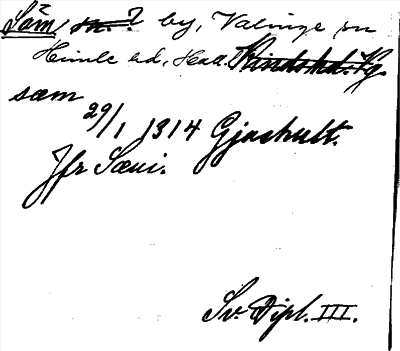 Säm, sn.? by, Valinge sn
Himle hd, Hall. Kinds hd. Vg.
sæm
29/1 1314 Gjnshult.
Jfr Sæm.
Sv. Dipl. III.